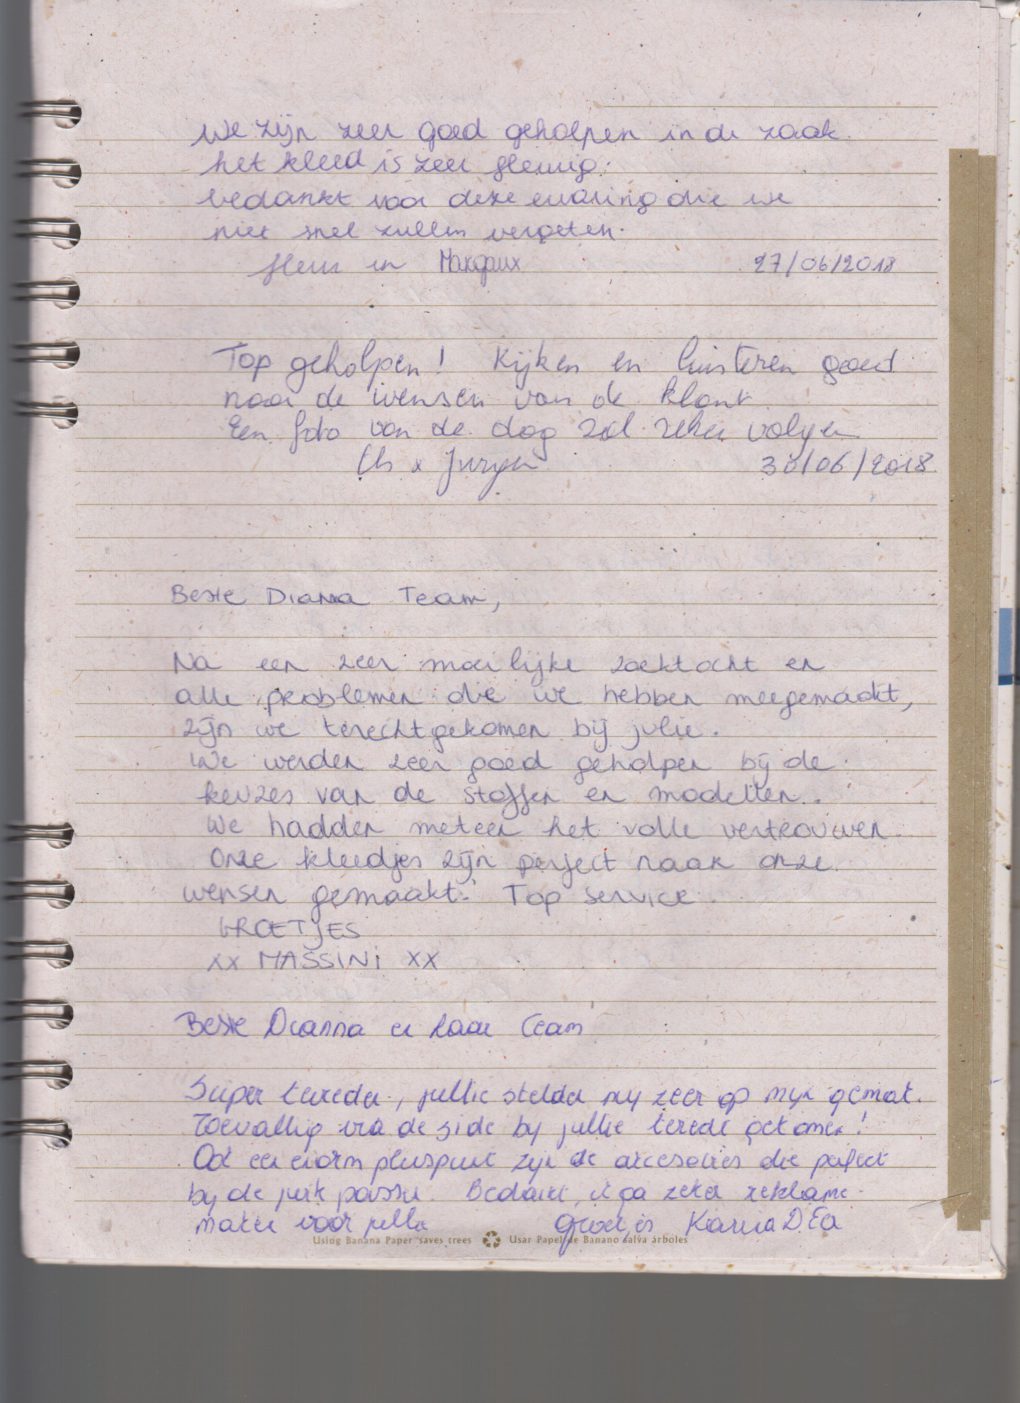 We zijn zeer goed geholpen in de zaak.
het kleed is zeer
bedankt voor deze ervaring die we
niet snel zullen vergeten.
fleur en Margaux 27/06/2018
Top geholpen! Kijken en luisteren goed
naar de wensen van de klant
Een foto van de dag zal zeker volgen
x Jurgen 30/06/2018
Beste Dianna Team,
Na een zeer moeilijke zoektocht en
alle problemen die we hebben meegemaakt,
zijn we terechtgekomen bij julie.
We werden zeer goed geholpen bij de
keuzes van de stoffen en modellen.
We hadden meteen het volle vertrouwen.
Onze kleedjes zijn perfect naar onze
wensen gemaakt! Top service.
GROETJES
xx MASSINI xx
Beste Dianna en haar Team
Super tevreden, jullie stelden my zeer op myn gemak.
Toevallig via de side by jullie terecht gekomen!
Ook een enorm pluspunt zyn de accesories die perfect
by de jurk passen. Bedankt, ik ga zeker reklame
maken voor jullie Groetjes Karina
Using Banana Paper saves trees Usar Papel de Banano salva árboles